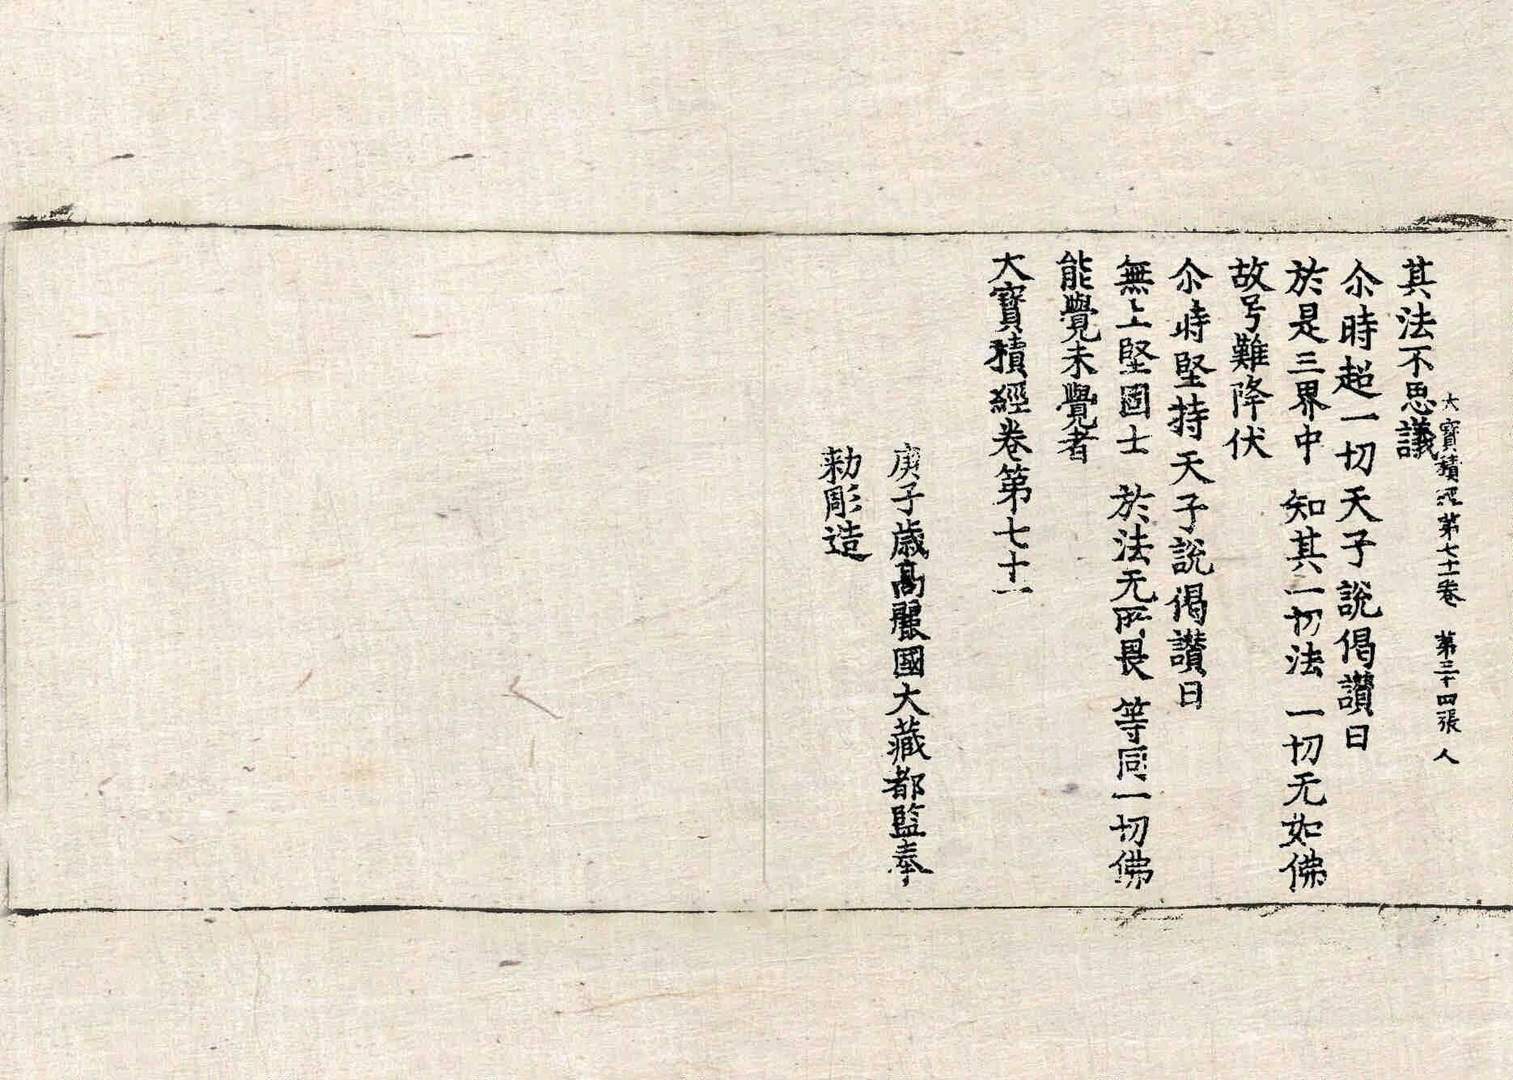 大寶積經第七十一卷 第三十四張 人
其法不思議
尒時超一切天子說偈讃曰
於是三界中 知其一切法 一切无如佛
故号難降伏
尒時堅持天子說偈讃曰
無上堅固士 於法无所畏 等同一切佛
能覺未覺者
大寶積經卷第七十一
庚子歲高麗國大藏都監奉
勅彫造